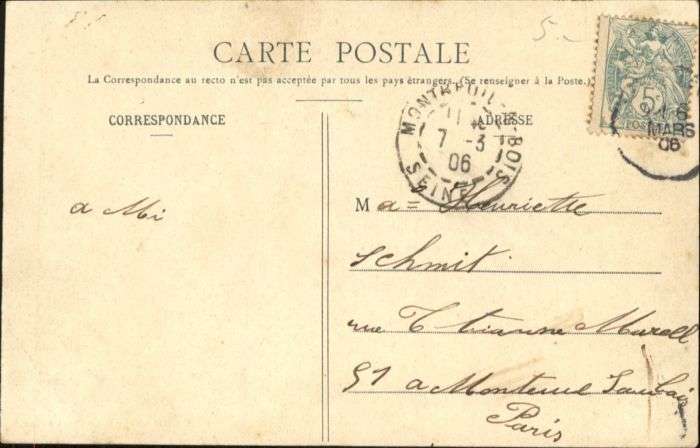 5.-
CARTE POSTALE
La Correspondance au recto n'est pas acceptée par tous les pays étrangers. (Se renseigner à la Poste.)
CORRESPONDANCE
ADRESSE
MONTREUIL-S-BOIS
7 -3
06
SEINE
5
POSTES
6
MARS
06
a Mi
Ma = Henriette
Schmit
rue Etianne Marcell
51 a Monteuil Soubois
Paris